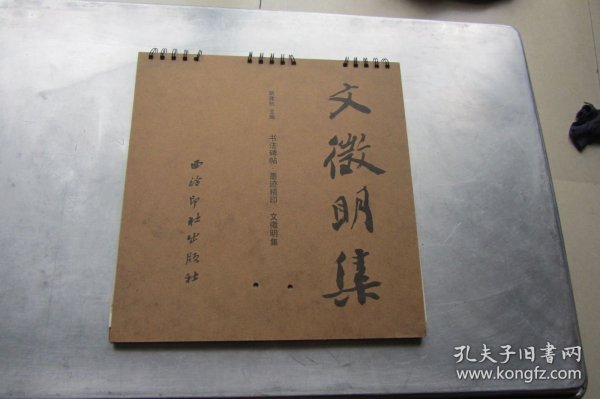 文徵明集
主编
书法碑帖·墨迹精印·文徵明集
西泠印社出版社
孔夫子旧书网
www.kongfz.com